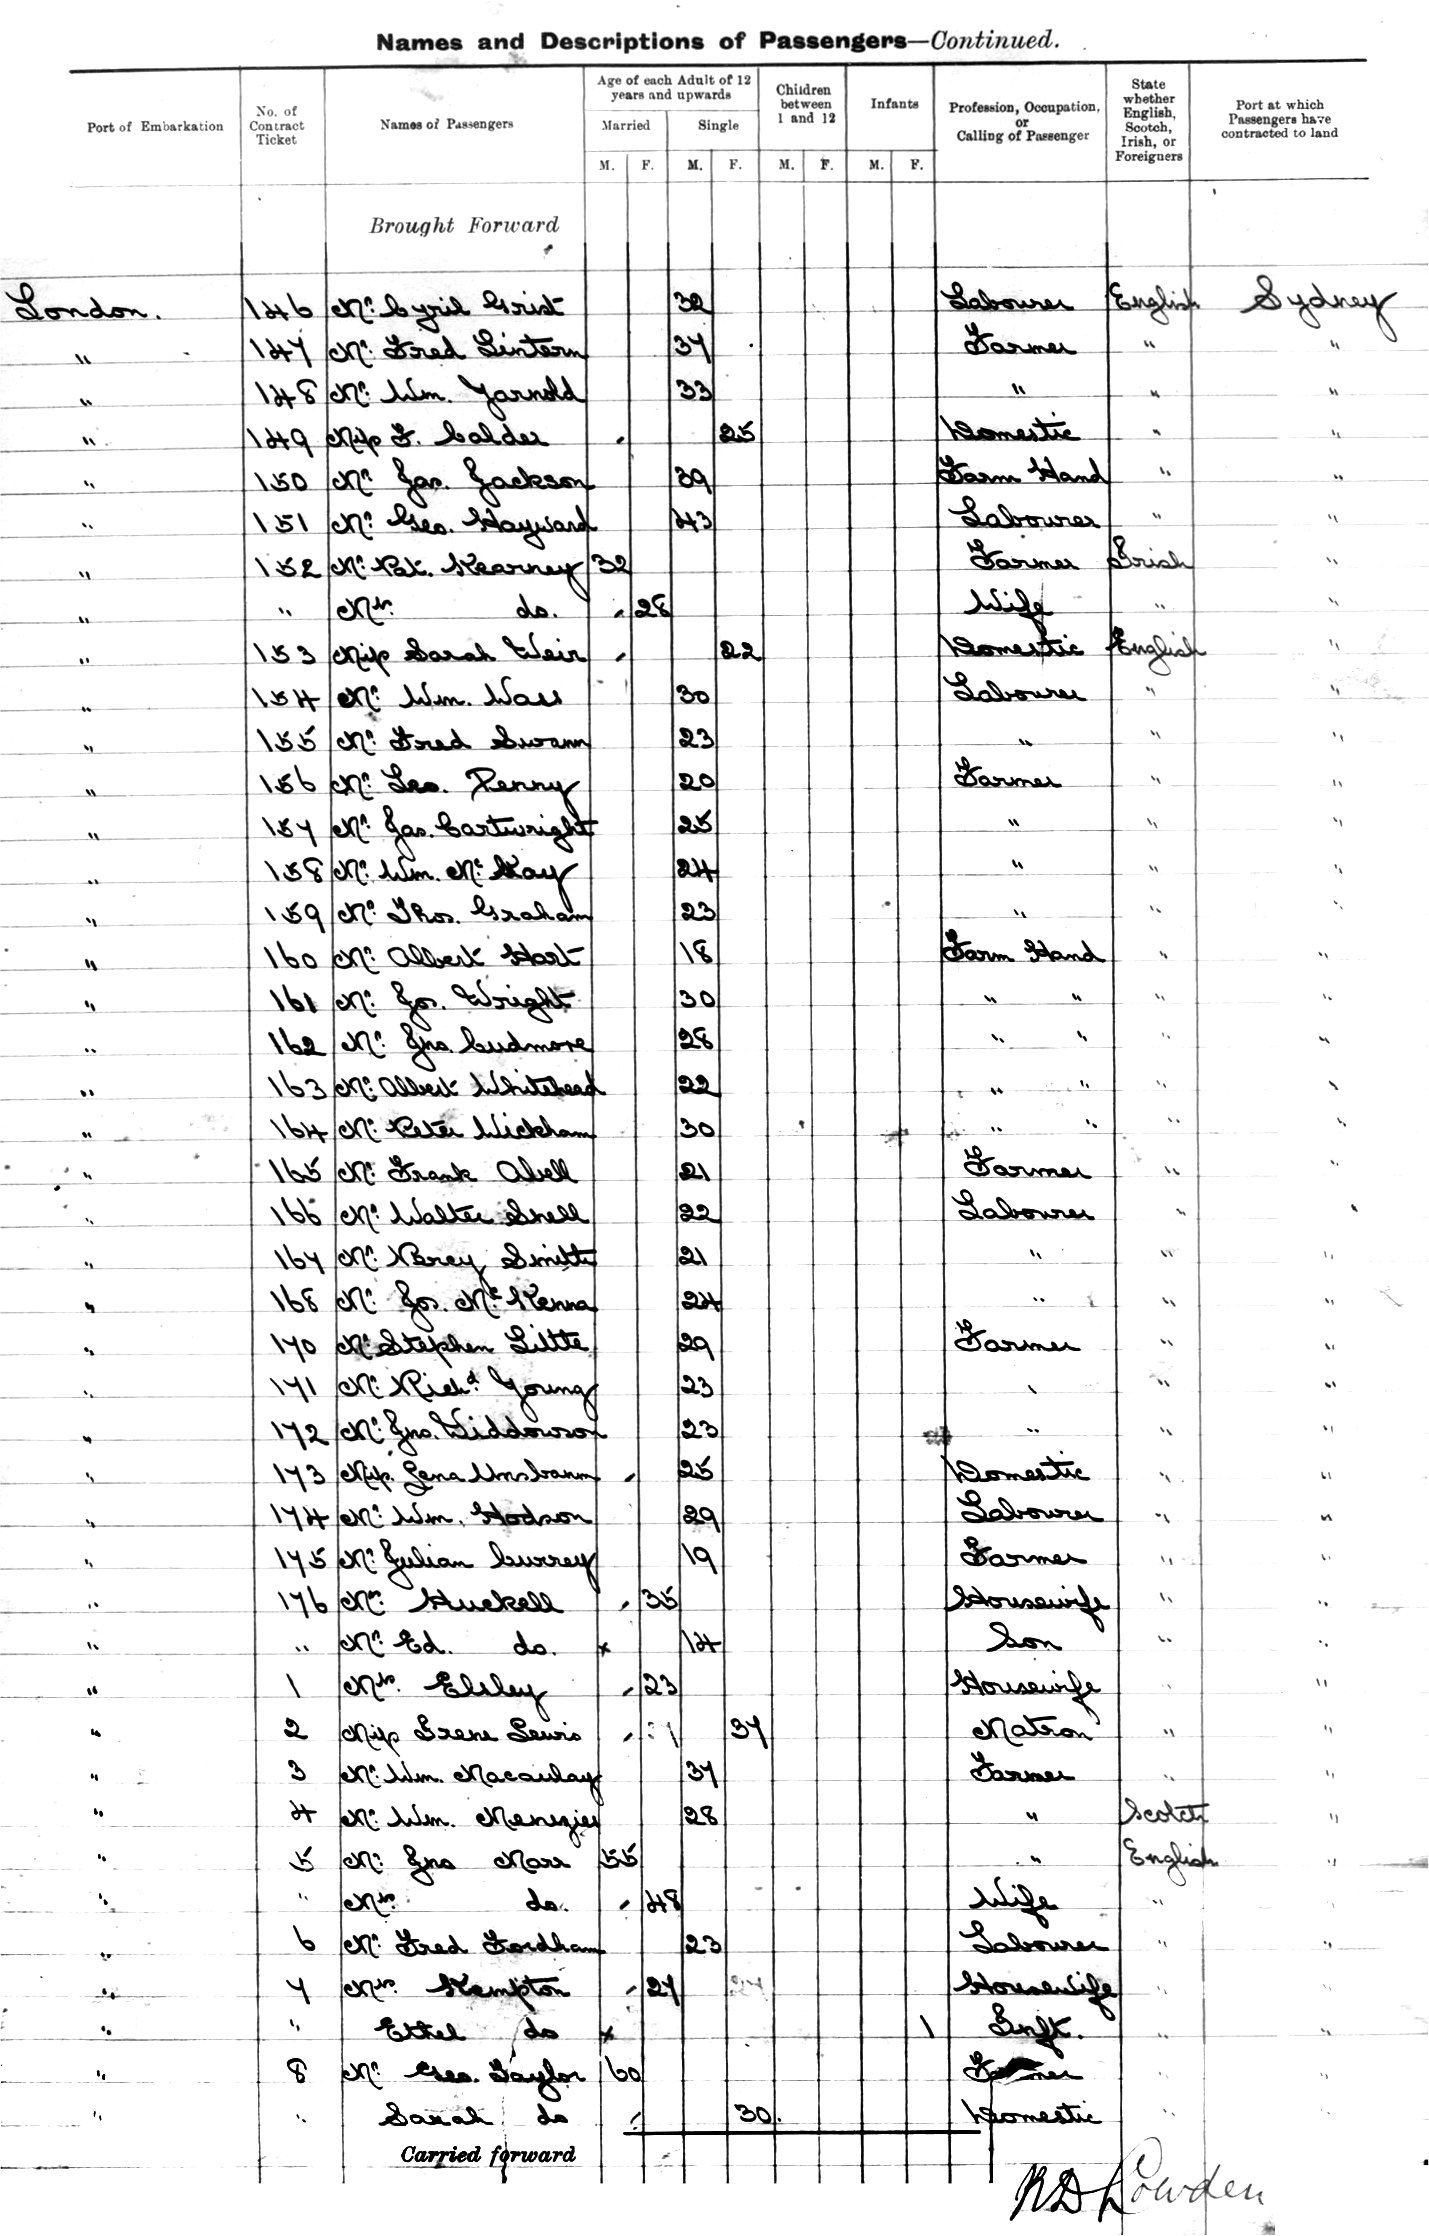 Names and Descriptions of Passengers—Continued.
Port of Embarkation
No. of Contract Ticket
Names of Passengers
Age of each Adult of 12 years and upwards
Married
Single
M. F. M. F.
Children between 1 and 12
M. F.
Infants
M. F.
Profession, Occupation, or Calling of Passenger
State whether English, Scotch, Irish, or Foreigners
Port at which Passengers have contracted to land
Brought Forward
London. 146 Mr. Cyril Grist 32 Labourer English Sydney
" 147 Mr. Fred Lintern 37 Farmer " "
" 148 Mr. Wm. Yarnold 33 " " "
" 149 Miss F. Calder 25 Domestic " "
" 150 Mr. Jas. Jackson 39 Farm Hand " "
" 151 Mr. Geo. Hayward 43 Labourer " "
" 152 Mr. Pat. Kearney 32 Farmer Irish "
" " Mrs. do. 28 Wife " "
" 153 Miss Sarah Weir 22 Domestic English "
" 154 Mr. Wm. Wass 30 Labourer " "
" 155 Mr. Fred Swann 23 " " "
" 156 Mr. Geo. Penny 20 Farmer " "
" 157 Mr. Jas. Cartwright 25 " " "
" 158 Mr. Wm. McKay 24 " " "
" 159 Mr. Thos. Graham 23 " " "
" 160 Mr. Albert Hart 18 Farm Hand " "
" 161 Mr. Jos. Wright 30 " " " "
" 162 Mr. Jno. Cudmore 28 " " " "
" 163 Mr. Albert Whitehead 22 " " " "
" 164 Mr. Peter Wickham 30 " " " "
" 165 Mr. Frank Abell 21 Farmer " "
" 166 Mr. Walter Snell 22 Labourer " "
" 167 Mr. Percy Smith 21 " " "
" 168 Mr. Jos. McKenna 24 " " "
" 170 Mr. Stephen Little 29 Farmer " "
" 171 Mr. Richd. Young 23 " " "
" 172 Mr. Jno. Widdowson 23 " " "
" 173 Miss Lena 25 Domestic " "
" 174 Mr. Wm. Hodson 29 Labourer " "
" 175 Mr. Julian Currey 19 Farmer " "
" 176 Mrs. Huckell 35 Housewife " "
" " Mr. Ed. do. x 14 Son " "
" 1 Mrs. Elsley 23 Housewife " "
" 2 Miss Irene Lewis 37 Matron " "
" 3 Mr. Wm. Macaulay 37 Farmer " "
" 4 Mr. Wm. Menzies 28 " Scotch "
" 5 Mr. Jno Marr 55 " English "
" " Mrs. do. 48 Wife " "
" 6 Mr. Fred Fordham 23 Labourer " "
" 7 Mrs. Kempton 27 Housewife " "
" " Ethel do x 1 Inft. " "
" 8 Mr. Geo. Taylor 60 Farmer " "
" " Sarah do 30. Domestic " "
Carried forward
R D Lowden